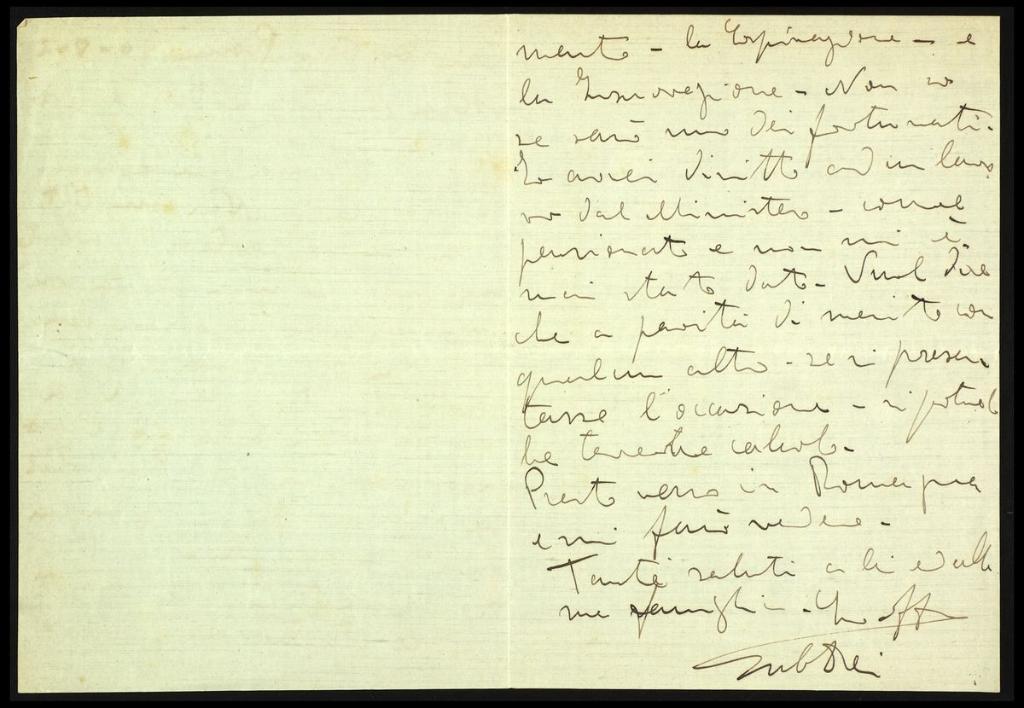 mento - la Espinazione - e
la Insurrezione - Non so
se sarò uno dei fortunati.
Io avrei diritto ad un lavo
ro dal Ministero - come
pensionato e non mi è
mai stato dato - Vuol dire
che a parità di merito con
qualcun altro - se si presen
tasse l'occasione - si potreb
be tenerne calcolo -
Presto verrò in Roma
e mi farò vedere -
Tanti saluti a lei e alla
sua famiglia - Suo aff